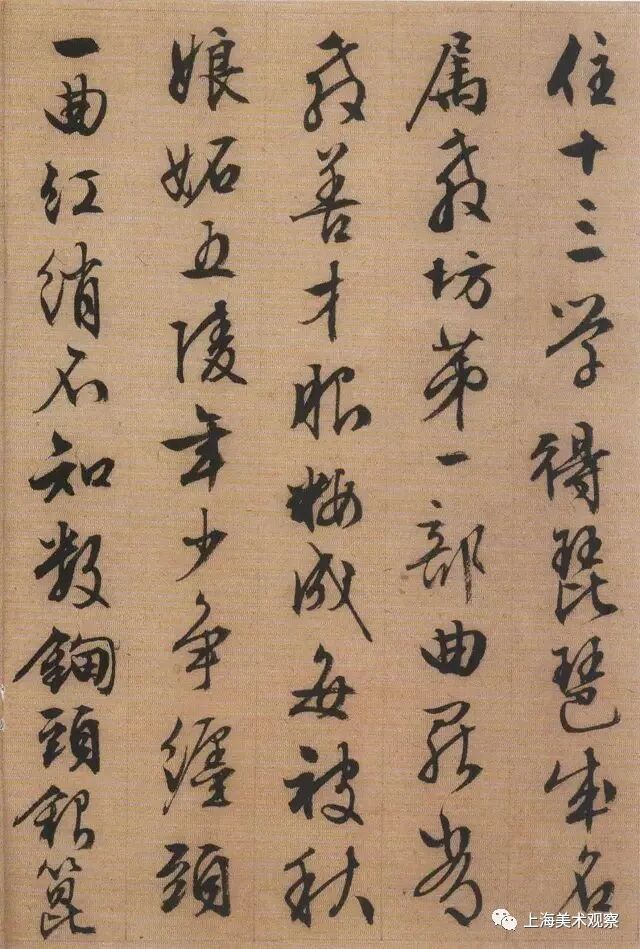 住十三学得琵琶成名
属教坊第一部曲罷常
教善才服粧成每被秋
娘妬五陵年少争纏頭
一曲紅綃不知数鈿頭銀篦
上海美术观察